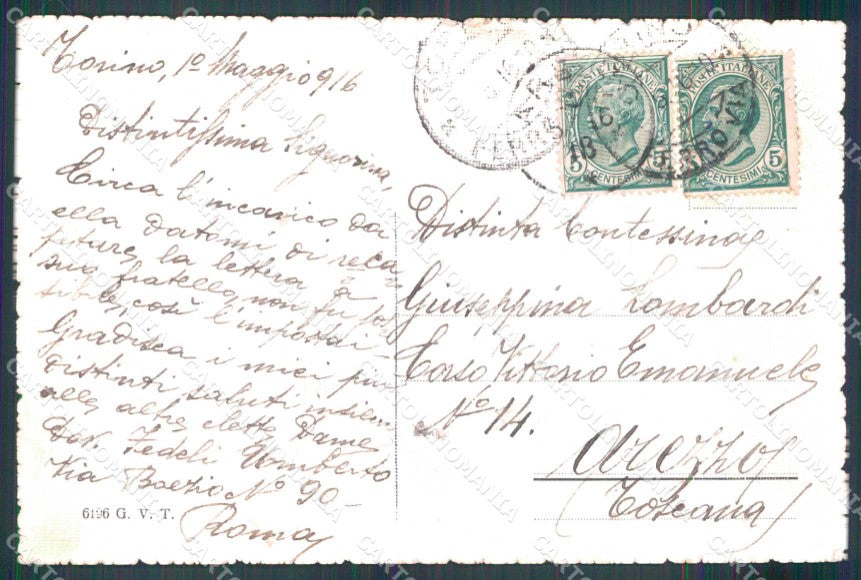 Torino, 1º Maggio 916
Distintissima Signorina,
Circa l'incarico da
ella datomi di reca-
pitare la lettera a
suo fratello, non fu pos
sibile, così l'impostai
Gradisca i miei più
distinti saluti insiem
alle altre elette Dame
Dev. Fedeli Umberto
Via Boezio Nº 90-
Roma
6196 G. V. T.
POSTE ITALIANE
5 CENTESIMI
POSTE ITALIANE
CENTESIMI 5
FERROVIA
Distinta Contessina
Giuseppina Lombardi
Corso Vittorio Emanuele
Nº 14.
Arezzo
(Toscana)
CARTOLINOMANIA